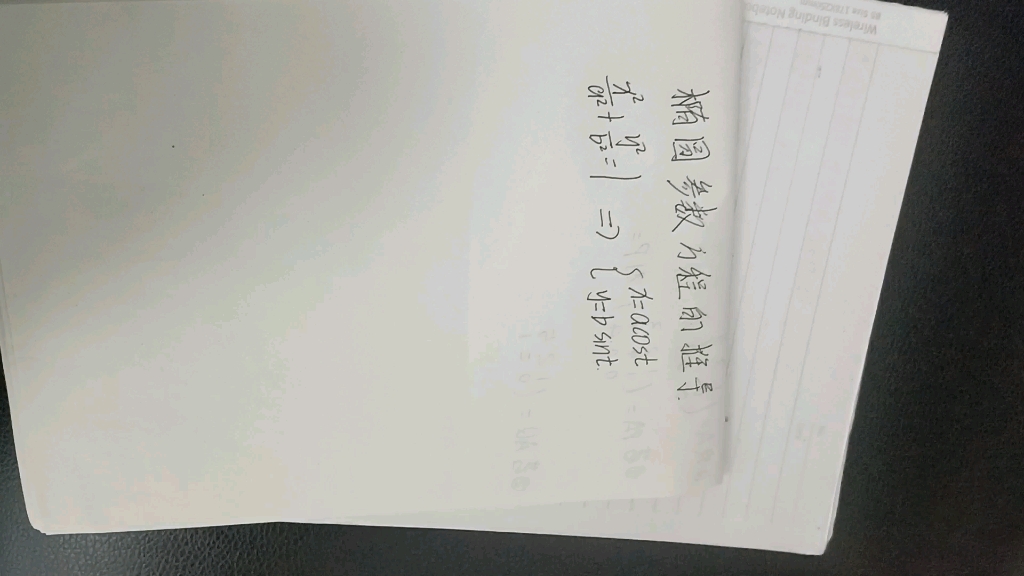 椭圆参数方程的推导.
x²/a² + y²/b² = 1 => { x=acost
{ y=bsint.
Wireless Binding Notebo